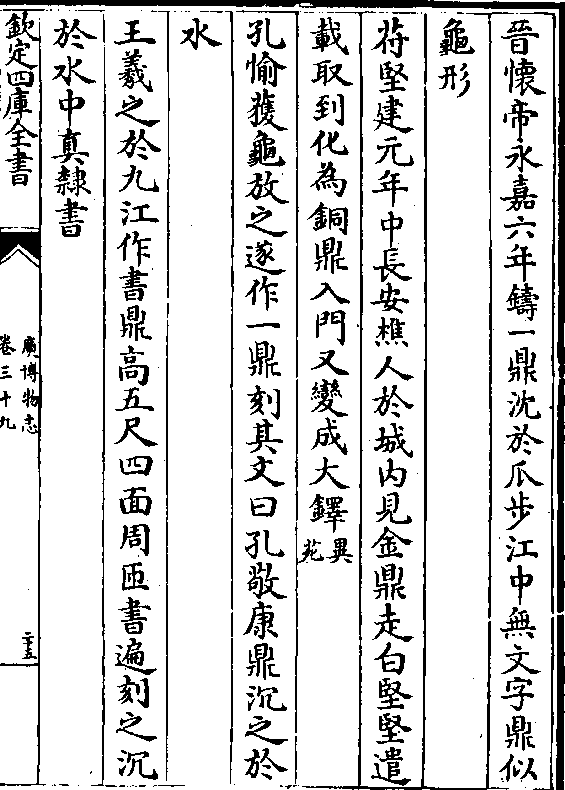 晉懷帝永嘉六年鑄一鼎沈於爪步江中無文字鼎似
龜形
苻堅建元年中長安樵人於城内見金鼎走白堅堅遣
載取到化為銅鼎入門又變成大鐸異
苑
孔愉獲龜放之遂作一鼎刻其文曰孔敬康鼎沉之於
水
王羲之於九江作書鼎高五尺四面周匝書遍刻之沉
於水中真隸書
欽定四庫全書
廣博物志
卷三十九
二十五